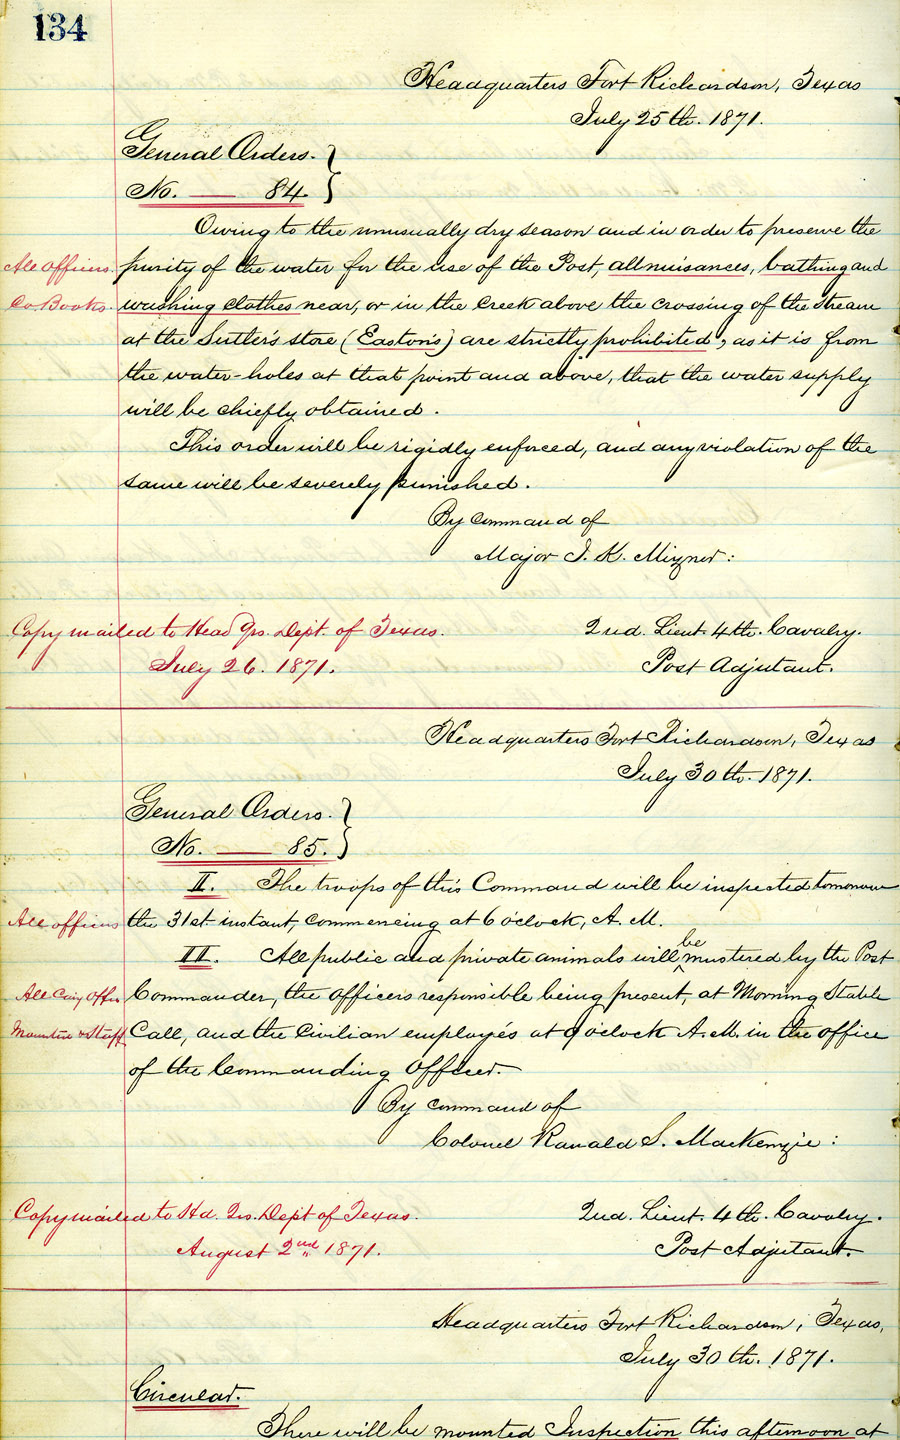 134
Headquarters Fort Richardson, Texas
July 25th. 1871.
General Orders. }
No. — 84. }
Owing to the unusually dry season and in order to preserve the
All officers. purity of the water for the use of the Post, all nuisances, bathing and
Co. Books washing clothes near, or in the Creek above the crossing of the stream
at the Sutler's store (Easton's) are strictly prohibited, as it is from
the water-holes at that point and above, that the water supply
will be chiefly obtained.
This order will be rigidly enforced, and any violation of the
same will be severely punished.
By command of
Major J. K. Mizner:
Copy mailed to Head Qrs. Dept. of Texas. 2nd. Lieut. 4th. Cavalry.
July 26. 1871. Post Adjutant.
Headquarters Fort Richardson, Texas
July 30th. 1871.
General Orders. }
No. — 85. }
II. The troops of this Command will be inspected tomorrow
All officers the 31st instant, commencing at 6 o'clock, A. M.
III. All public and private animals will be mustered by the Post
All Cav'y Offrs Commander, the officers responsible being present, at Morning Stable
& Staff Call, and the Civilian employés at 9 o'clock A. M. in the office
of the Commanding Officer.
By command of
Colonel Ranald S. MacKenzie:
Copy mailed to Hd. Qrs. Dept of Texas. 2nd. Lieut. 4th. Cavalry.
August 2nd 1871. Post Adjutant.
Headquarters Fort Richardson, Texas,
July 30th. 1871.
Circular.
There will be mounted Inspection this afternoon at